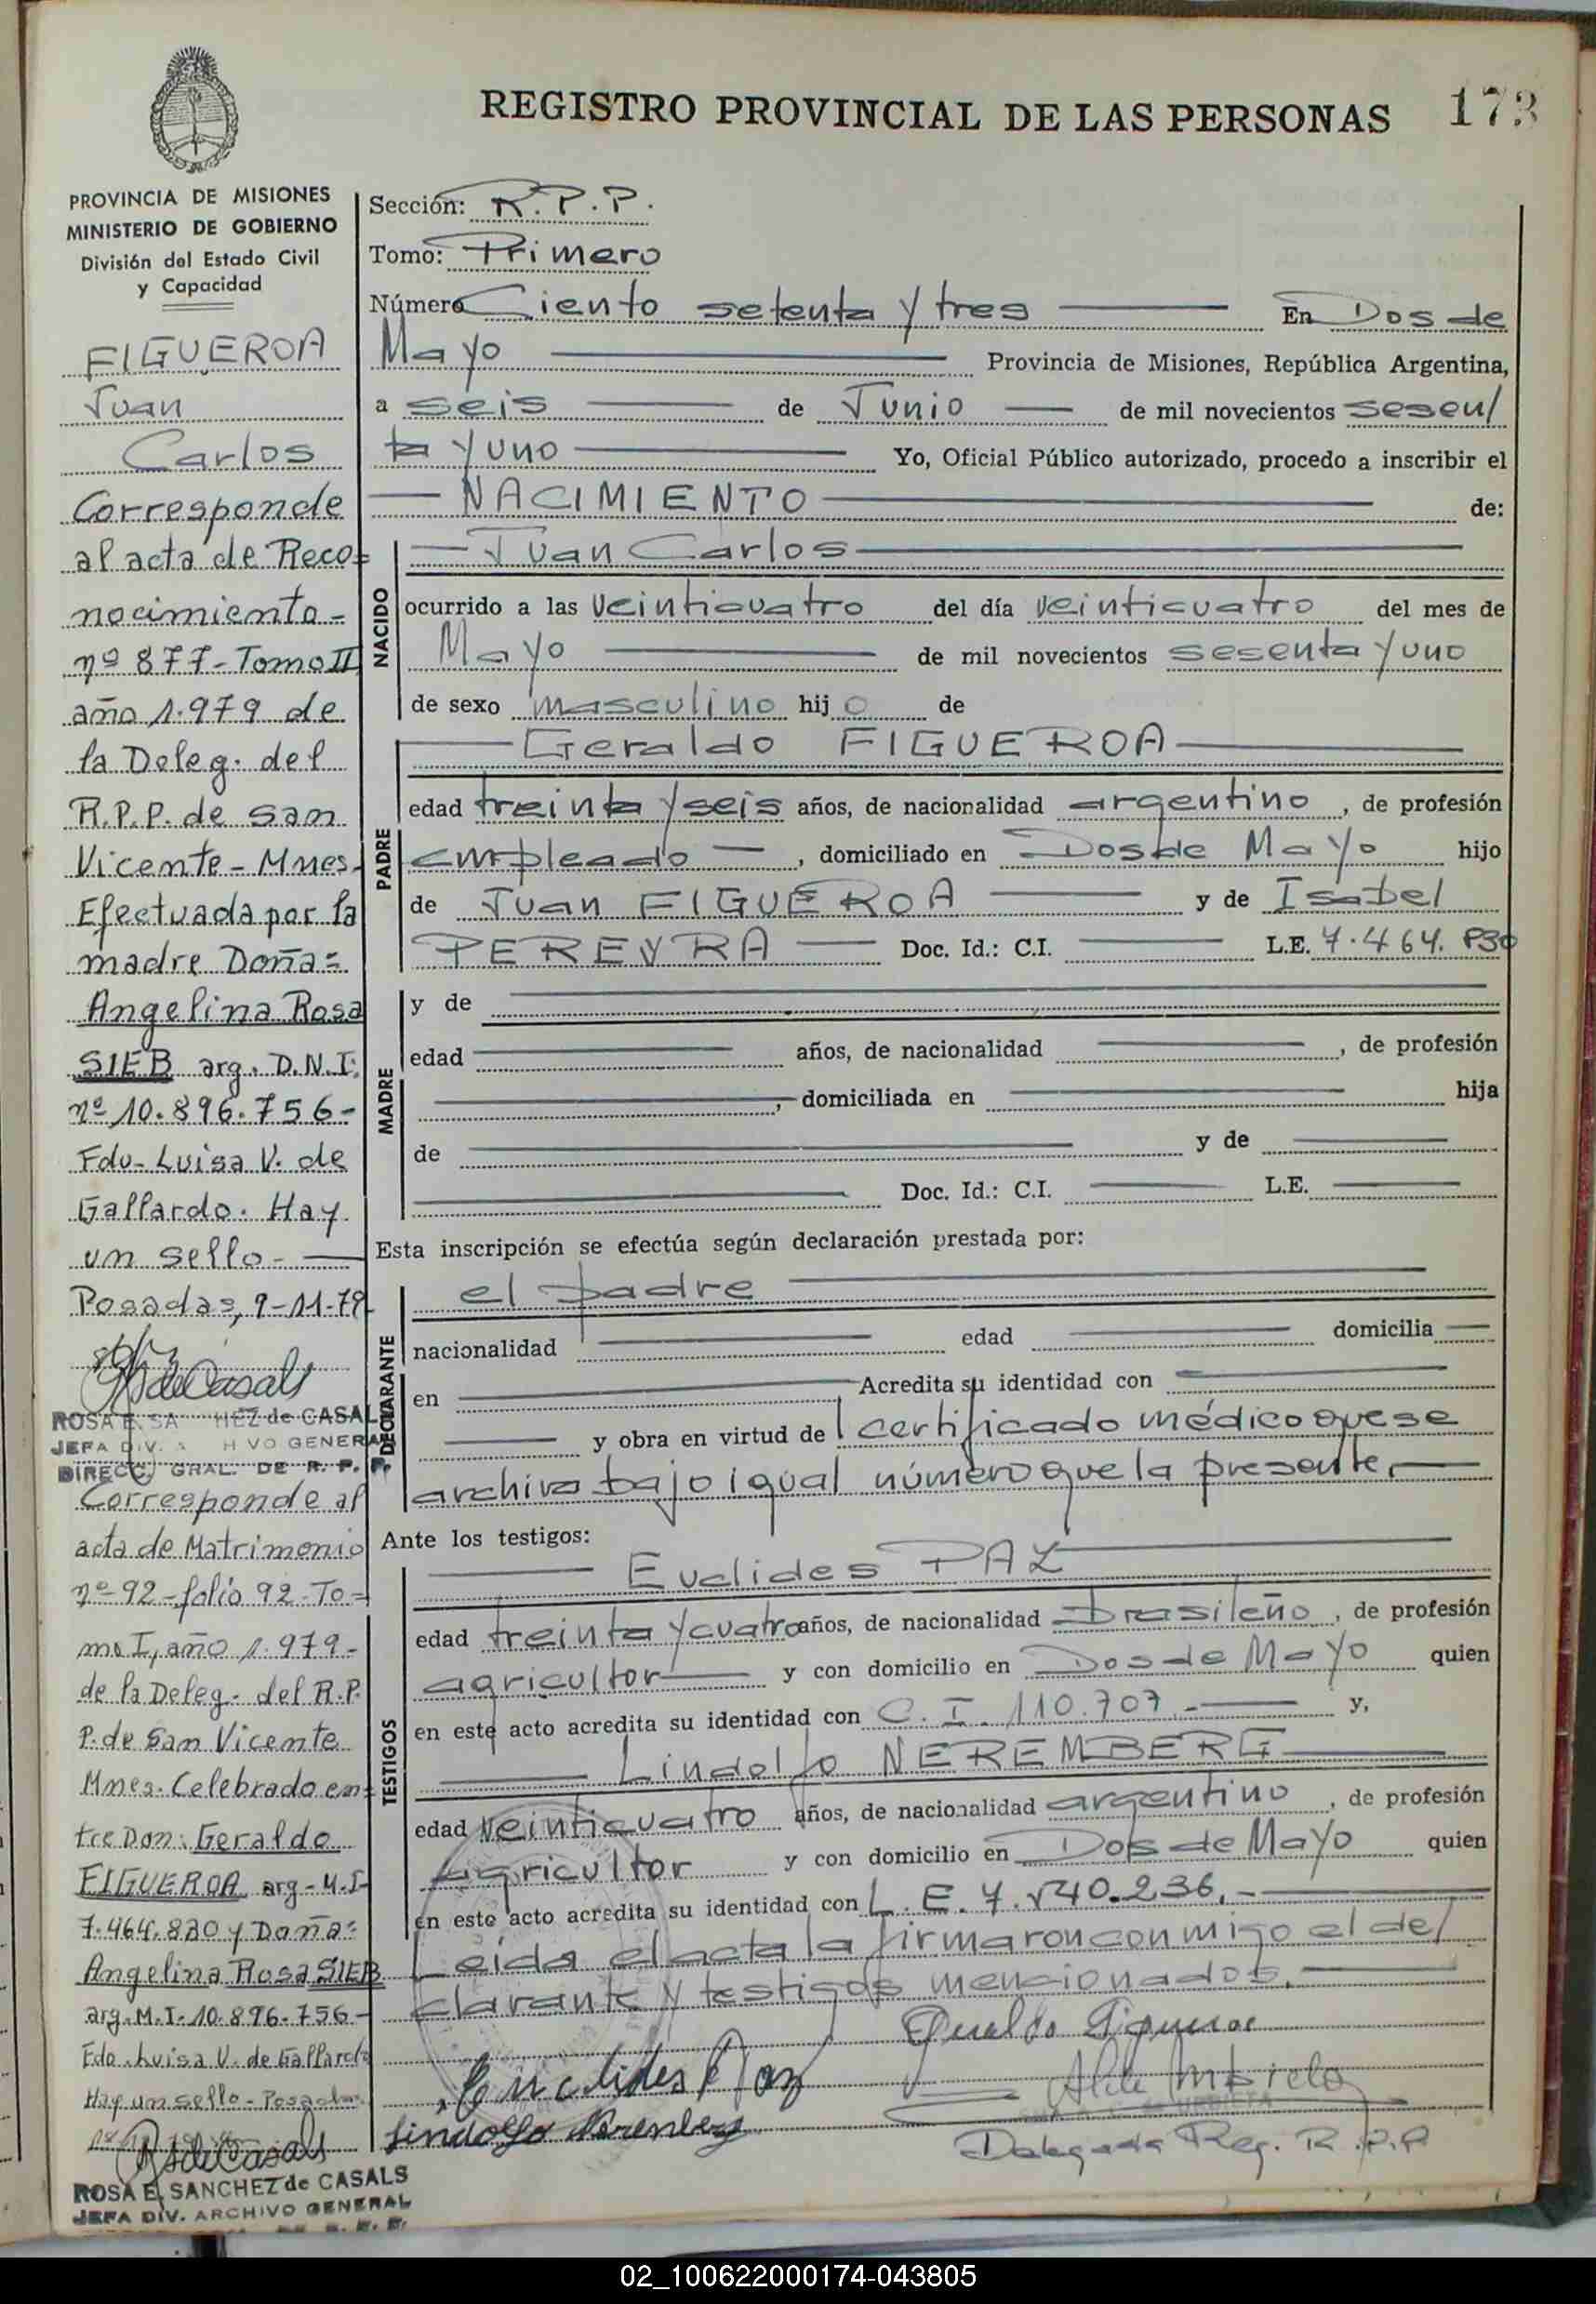 REGISTRO PROVINCIAL DE LAS PERSONAS 173
PROVINCIA DE MISIONES
MINISTERIO DE GOBIERNO
División del Estado Civil
y Capacidad
FIGUEROA
Juan
Carlos
Corresponde
al acta de Reco=
nocimiento-
nº 877-Tomo II
año 1.979 de
la Deleg. del
R.P.P. de San
Vicente-Mnes.
Efectuada por la
madre Doña=
Angelina Rosa
SIEB arg. D.N.I.
nº 10.896.756-
Fdo- Luisa V. de
Gallardo. Hay
un sello-
Posadas, 9-11-79
ROSA E. SANCHEZ de CASALS
JEFA DIV. ARCHIVO GENERAL
DIRECC. GRAL. DE R. P. P.
Corresponde al
acta de Matrimonio
nº-92-folio 92-To=
mo I, año 1.979-
de la Deleg. del R.P.
P. de San Vicente
Mnes. Celebrado en=
tre Don: Geraldo
FIGUEROA arg-M.I-
7.464.830 y Doña=
Angelina Rosa SIEB
arg. M.I- 10.896.756-
Fdo. Luisa V. de Gallardo
Hay un sello- Posadas
ROSA E. SANCHEZ de CASALS
JEFA DIV. ARCHIVO GENERAL
Sección: R.P.P.
Tomo: Primero
Número Ciento setenta y tres En Dos de
Mayo Provincia de Misiones, República Argentina,
a seis de Junio de mil novecientos sesen/
ta y uno Yo, Oficial Público autorizado, procedo a inscribir el
NACIMIENTO de:
NACIDO
Juan Carlos
ocurrido a las veinticuatro del día veinticuatro del mes de
Mayo de mil novecientos sesenta y uno
de sexo masculino hijo de
PADRE
Geraldo FIGUEROA
edad treinta y seis años, de nacionalidad argentino, de profesión
empleado, domiciliado en Dos de Mayo hijo
de Juan FIGUEROA y de Isabel
PEREYRA Doc. Id.: C.I. L.E. 7.464.830
MADRE
y de
edad años, de nacionalidad , de profesión
, domiciliada en hija
de y de
Doc. Id.: C.I. L.E.
Esta inscripción se efectúa según declaración prestada por:
DECLARANTE
el padre
nacionalidad edad domicilia
en Acredita su identidad con
y obra en virtud de certificado médico que se
archiva bajo igual número que la presente.
Ante los testigos:
TESTIGOS
Euclides PAZ
edad treinta y cuatro años, de nacionalidad brasileño, de profesión
agricultor y con domicilio en Dos de Mayo quien
en este acto acredita su identidad con C. I. 110.707.- y,
Lindolfo NEREMBERG
edad veinticuatro años, de nacionalidad argentino, de profesión
agricultor y con domicilio en Dos de Mayo quien
en este acto acredita su identidad con L. E. 7.540.236.-
Leida el acta la firmaron conmigo el de/
clarante y testigos mencionados.
Geraldo Figueroa
Euclides Paz
Lindolfo Nerenberg
Delegada Reg. R.P.P
02_100622000174-043805